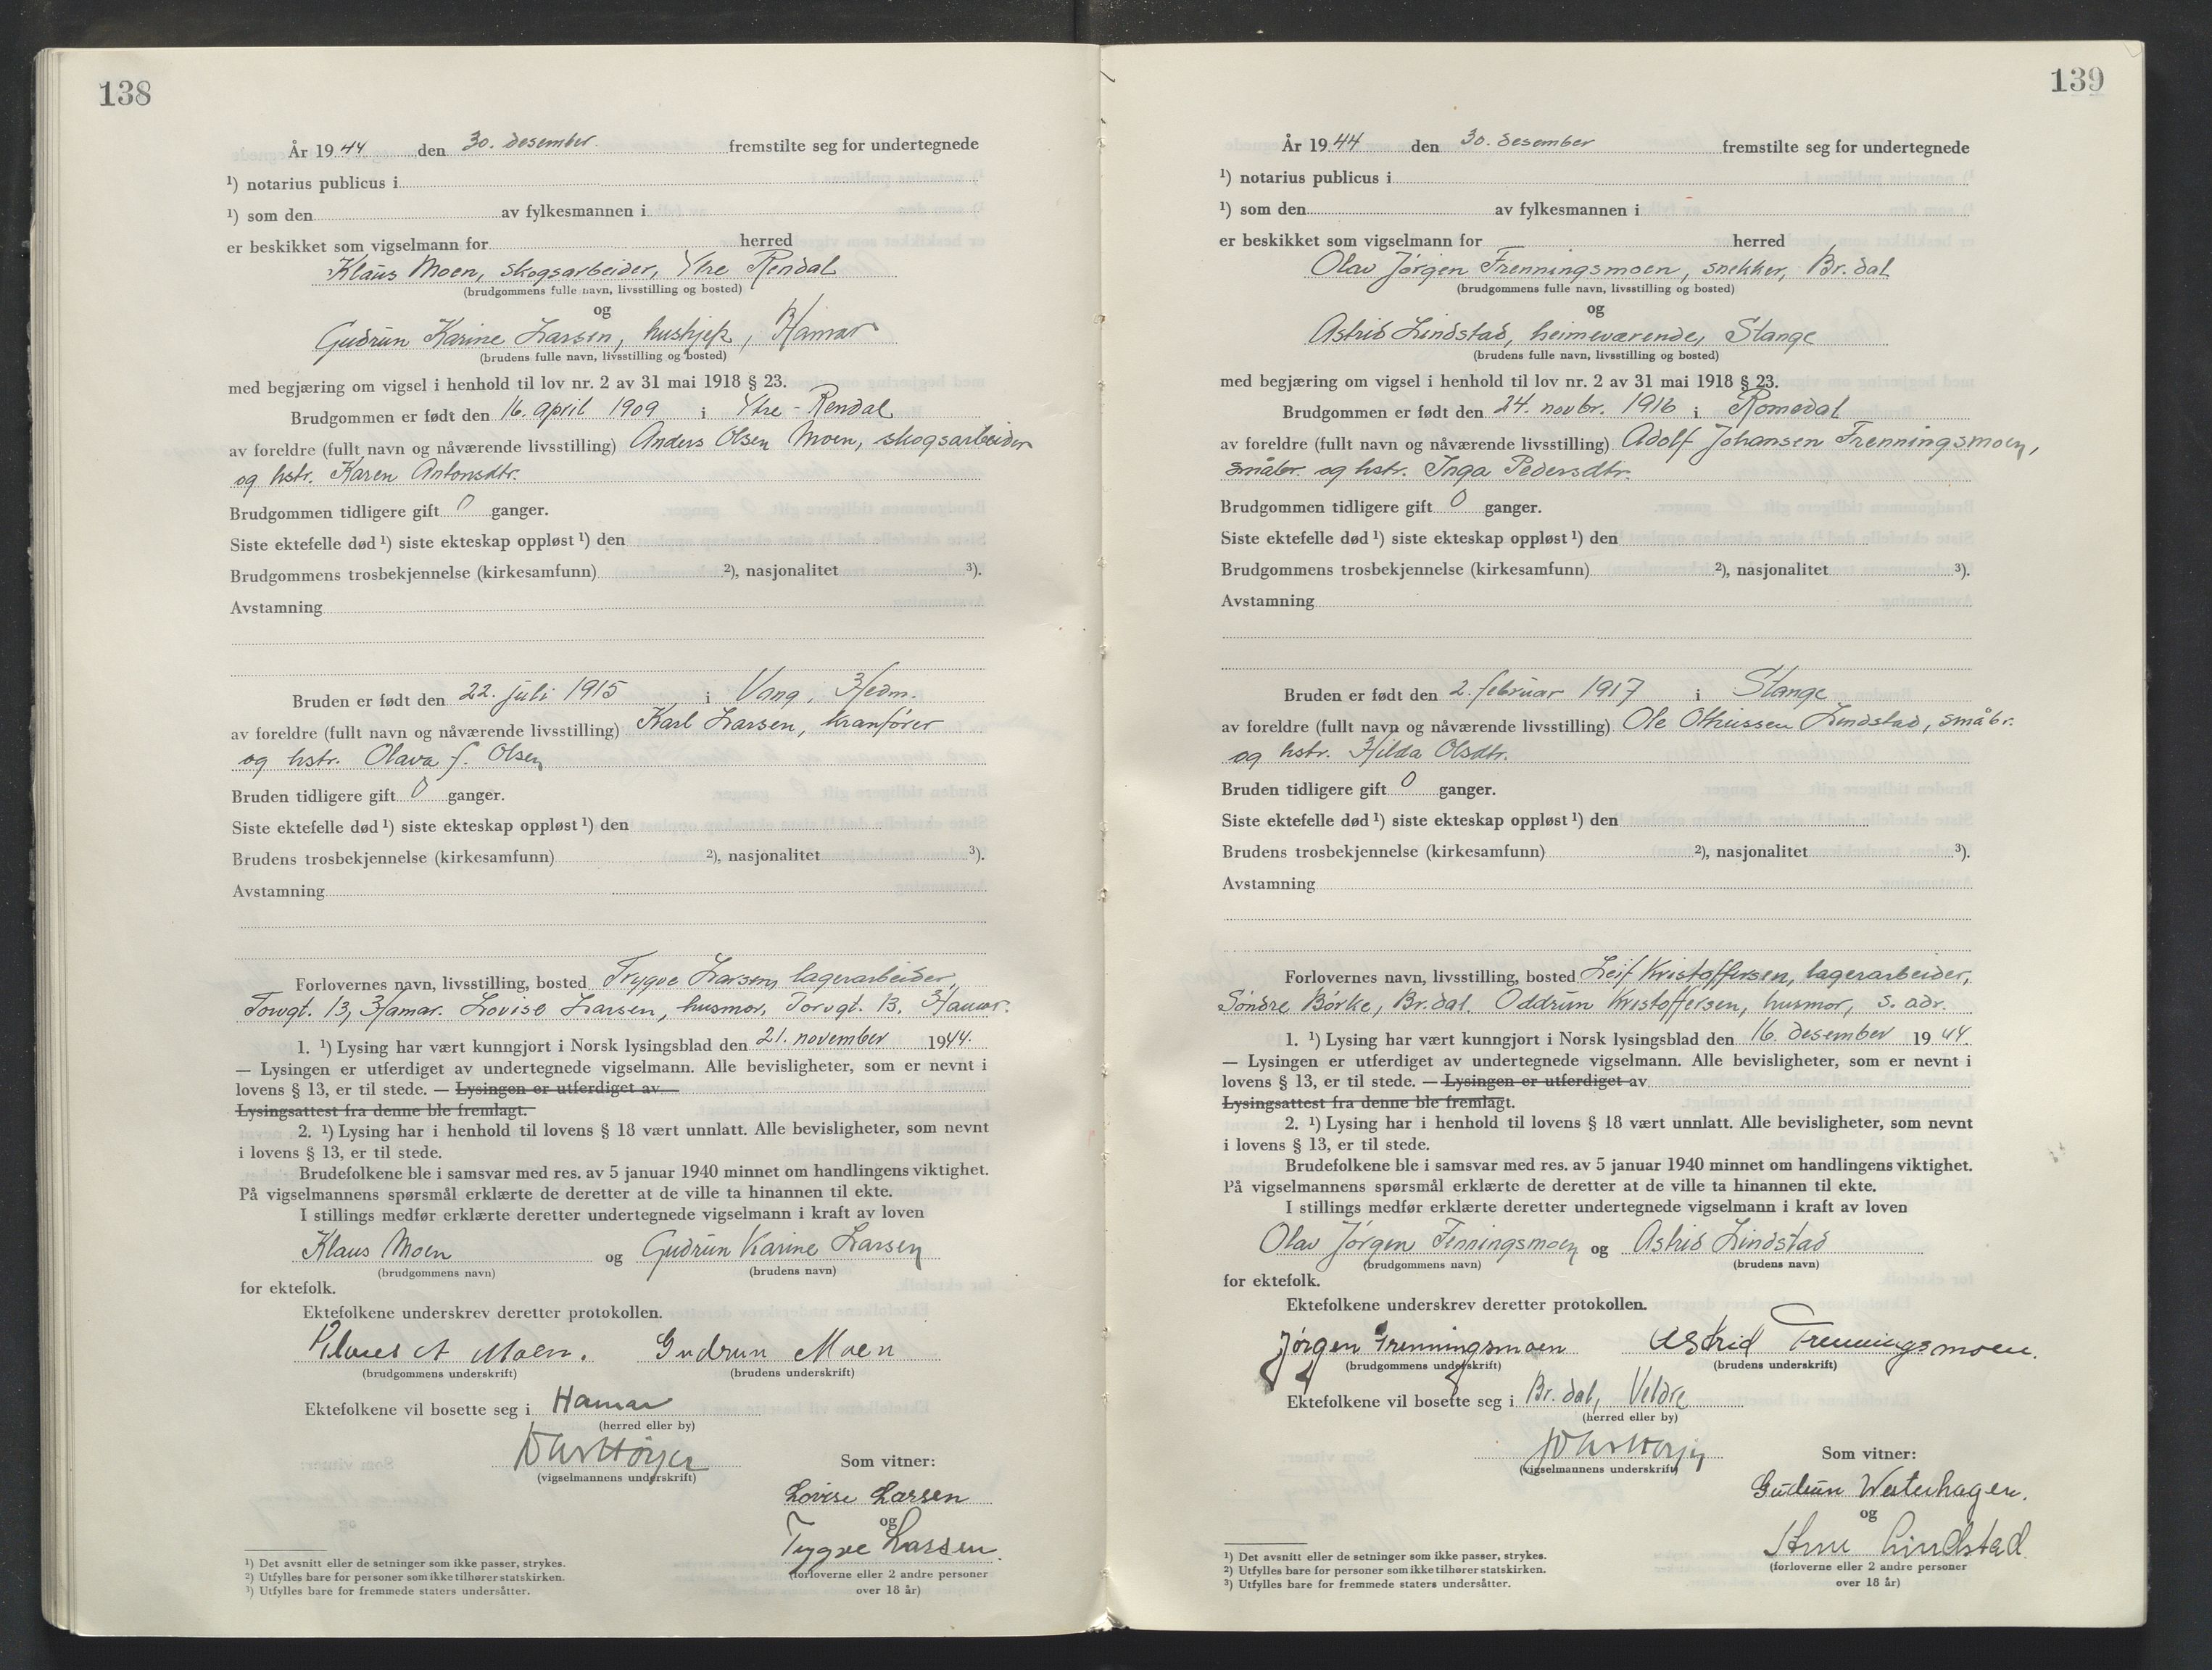 138
År 1944 den 30. desember fremstilte seg for undertegnede
¹) notarius publicus i
¹) som den av fylkesmannen i
er beskikket som vigselmann for herred
Klaus Moen, skogsarbeider, Ytre Rendal
(brudgommens fulle navn, livsstilling og bosted)
og
Gudrun Karine Larsen, hushjelp, Hamar
(brudens fulle navn, livsstilling og bosted)
med begjæring om vigsel i henhold til lov nr. 2 av 31 mai 1918 § 23.
Brudgommen er født den 16. april 1909 i Ytre-Rendal
av foreldre (fullt navn og nåværende livsstilling) Anders Olsen Moen, skogsarbeider
og hstr. Karen Antonsdtr.
Brudgommen tidligere gift 0 ganger.
Siste ektefelle død ¹) siste ekteskap oppløst ¹) den
Brudgommens trosbekjennelse (kirkesamfunn) ²), nasjonalitet ³).
Avstamning
Bruden er født den 22. juli 1915 i Vang, Hedm.
av foreldre (fullt navn og nåværende livsstilling) Karl Larsen, kranfører
og hstr. Olava f. Olsen
Bruden tidligere gift 0 ganger.
Siste ektefelle død ¹) siste ekteskap oppløst ¹) den
Brudens trosbekjennelse (kirkesamfunn) ²), nasjonalitet ³).
Avstamning
Forlovernes navn, livsstilling, bosted Trygve Larsen, lagerarbeider,
Torvgt. 13, Hamar. Lovise Larsen, husmor, Torvgt. 13, Hamar.
1. ¹) Lysing har vært kunngjort i Norsk lysingsblad den 21. november 1944.
— Lysingen er utferdiget av undertegnede vigselmann. Alle bevisligheter, som er nevnt i
lovens § 13, er til stede. — Lysingen er utferdiget av
Lysingsattest fra denne ble fremlagt.
2. ¹) Lysing har i henhold til lovens § 18 vært unnlatt. Alle bevisligheter, som nevnt
i lovens § 13, er til stede.
Brudefolkene ble i samsvar med res. av 5 januar 1940 minnet om handlingens viktighet.
På vigselmannens spørsmål erklærte de deretter at de ville ta hinannen til ekte.
I stillings medfør erklærte deretter undertegnede vigselmann i kraft av loven
Klaus Moen og Gudrun Karine Larsen
(brudgommens navn) (brudens navn)
for ektefolk.
Ektefolkene underskrev deretter protokollen.
Klaus A Moen. Gudrun Moen
(brudgommens underskrift) (brudens underskrift)
Ektefolkene vil bosette seg i Hamar
(herred eller by)
(vigselmannens underskrift)
Som vitner:
Lovise Larsen
og
Trygve Larsen.
(forloverne eller 2 andre personer
over 18 år)
¹) Det avsnitt eller de setninger som ikke passer, strykes.
²) Utfylles bare for personer som ikke tilhører statskirken.
³) Utfylles bare for fremmede staters undersåtter.
139
År 1944 den 30. desember fremstilte seg for undertegnede
¹) notarius publicus i
¹) som den av fylkesmannen i
er beskikket som vigselmann for herred
Olav Jørgen Frenningsmoen, snekker, Br.dal
(brudgommens fulle navn, livsstilling og bosted)
og
Astrid Lindstad, heimeværende, Stange
(brudens fulle navn, livsstilling og bosted)
med begjæring om vigsel i henhold til lov nr. 2 av 31 mai 1918 § 23.
Brudgommen er født den 24. novbr. 1916 i Romedal
av foreldre (fullt navn og nåværende livsstilling) Adolf Johansen Frenningsmoen,
småbr. og hstr. Inga Pedersdtr.
Brudgommen tidligere gift 0 ganger.
Siste ektefelle død ¹) siste ekteskap oppløst ¹) den
Brudgommens trosbekjennelse (kirkesamfunn) ²), nasjonalitet ³).
Avstamning
Bruden er født den 2. februar 1917 i Stange
av foreldre (fullt navn og nåværende livsstilling) Ole Othiussen Lindstad, småbr.
og hstr. Hilda Olsdtr.
Bruden tidligere gift 0 ganger.
Siste ektefelle død ¹) siste ekteskap oppløst ¹) den
Brudens trosbekjennelse (kirkesamfunn) ²), nasjonalitet ³).
Avstamning
Forlovernes navn, livsstilling, bosted Leif Kristoffersen, lagerarbeider,
Söndre Börke, Br.dal. Oddrun Kristoffersen, husmor, s. adr.
1. ¹) Lysing har vært kunngjort i Norsk lysingsblad den 16. desember 1944.
— Lysingen er utferdiget av undertegnede vigselmann. Alle bevisligheter, som er nevnt i
lovens § 13, er til stede. — Lysingen er utferdiget av
Lysingsattest fra denne ble fremlagt.
2. ¹) Lysing har i henhold til lovens § 18 vært unnlatt. Alle bevisligheter, som nevnt
i lovens § 13, er til stede.
Brudefolkene ble i samsvar med res. av 5 januar 1940 minnet om handlingens viktighet.
På vigselmannens spørsmål erklærte de deretter at de ville ta hinannen til ekte.
I stillings medfør erklærte deretter undertegnede vigselmann i kraft av loven
Olav Jørgen Fenningsmoen og Astrid Lindstad
(brudgommens navn) (brudens navn)
for ektefolk.
Ektefolkene underskrev deretter protokollen.
Jørgen Frenningsmoen Astrid Frenningsmoen.
(brudgommens underskrift) (brudens underskrift)
Ektefolkene vil bosette seg i Br.dal, Veldre
(herred eller by)
(vigselmannens underskrift)
Som vitner:
Gudrun Westerhagen.
og
Arne Lindstad.
(forloverne eller 2 andre personer
over 18 år)
¹) Det avsnitt eller de setninger som ikke passer, strykes.
²) Utfylles bare for personer som ikke tilhører statskirken.
³) Utfylles bare for fremmede staters undersåtter.